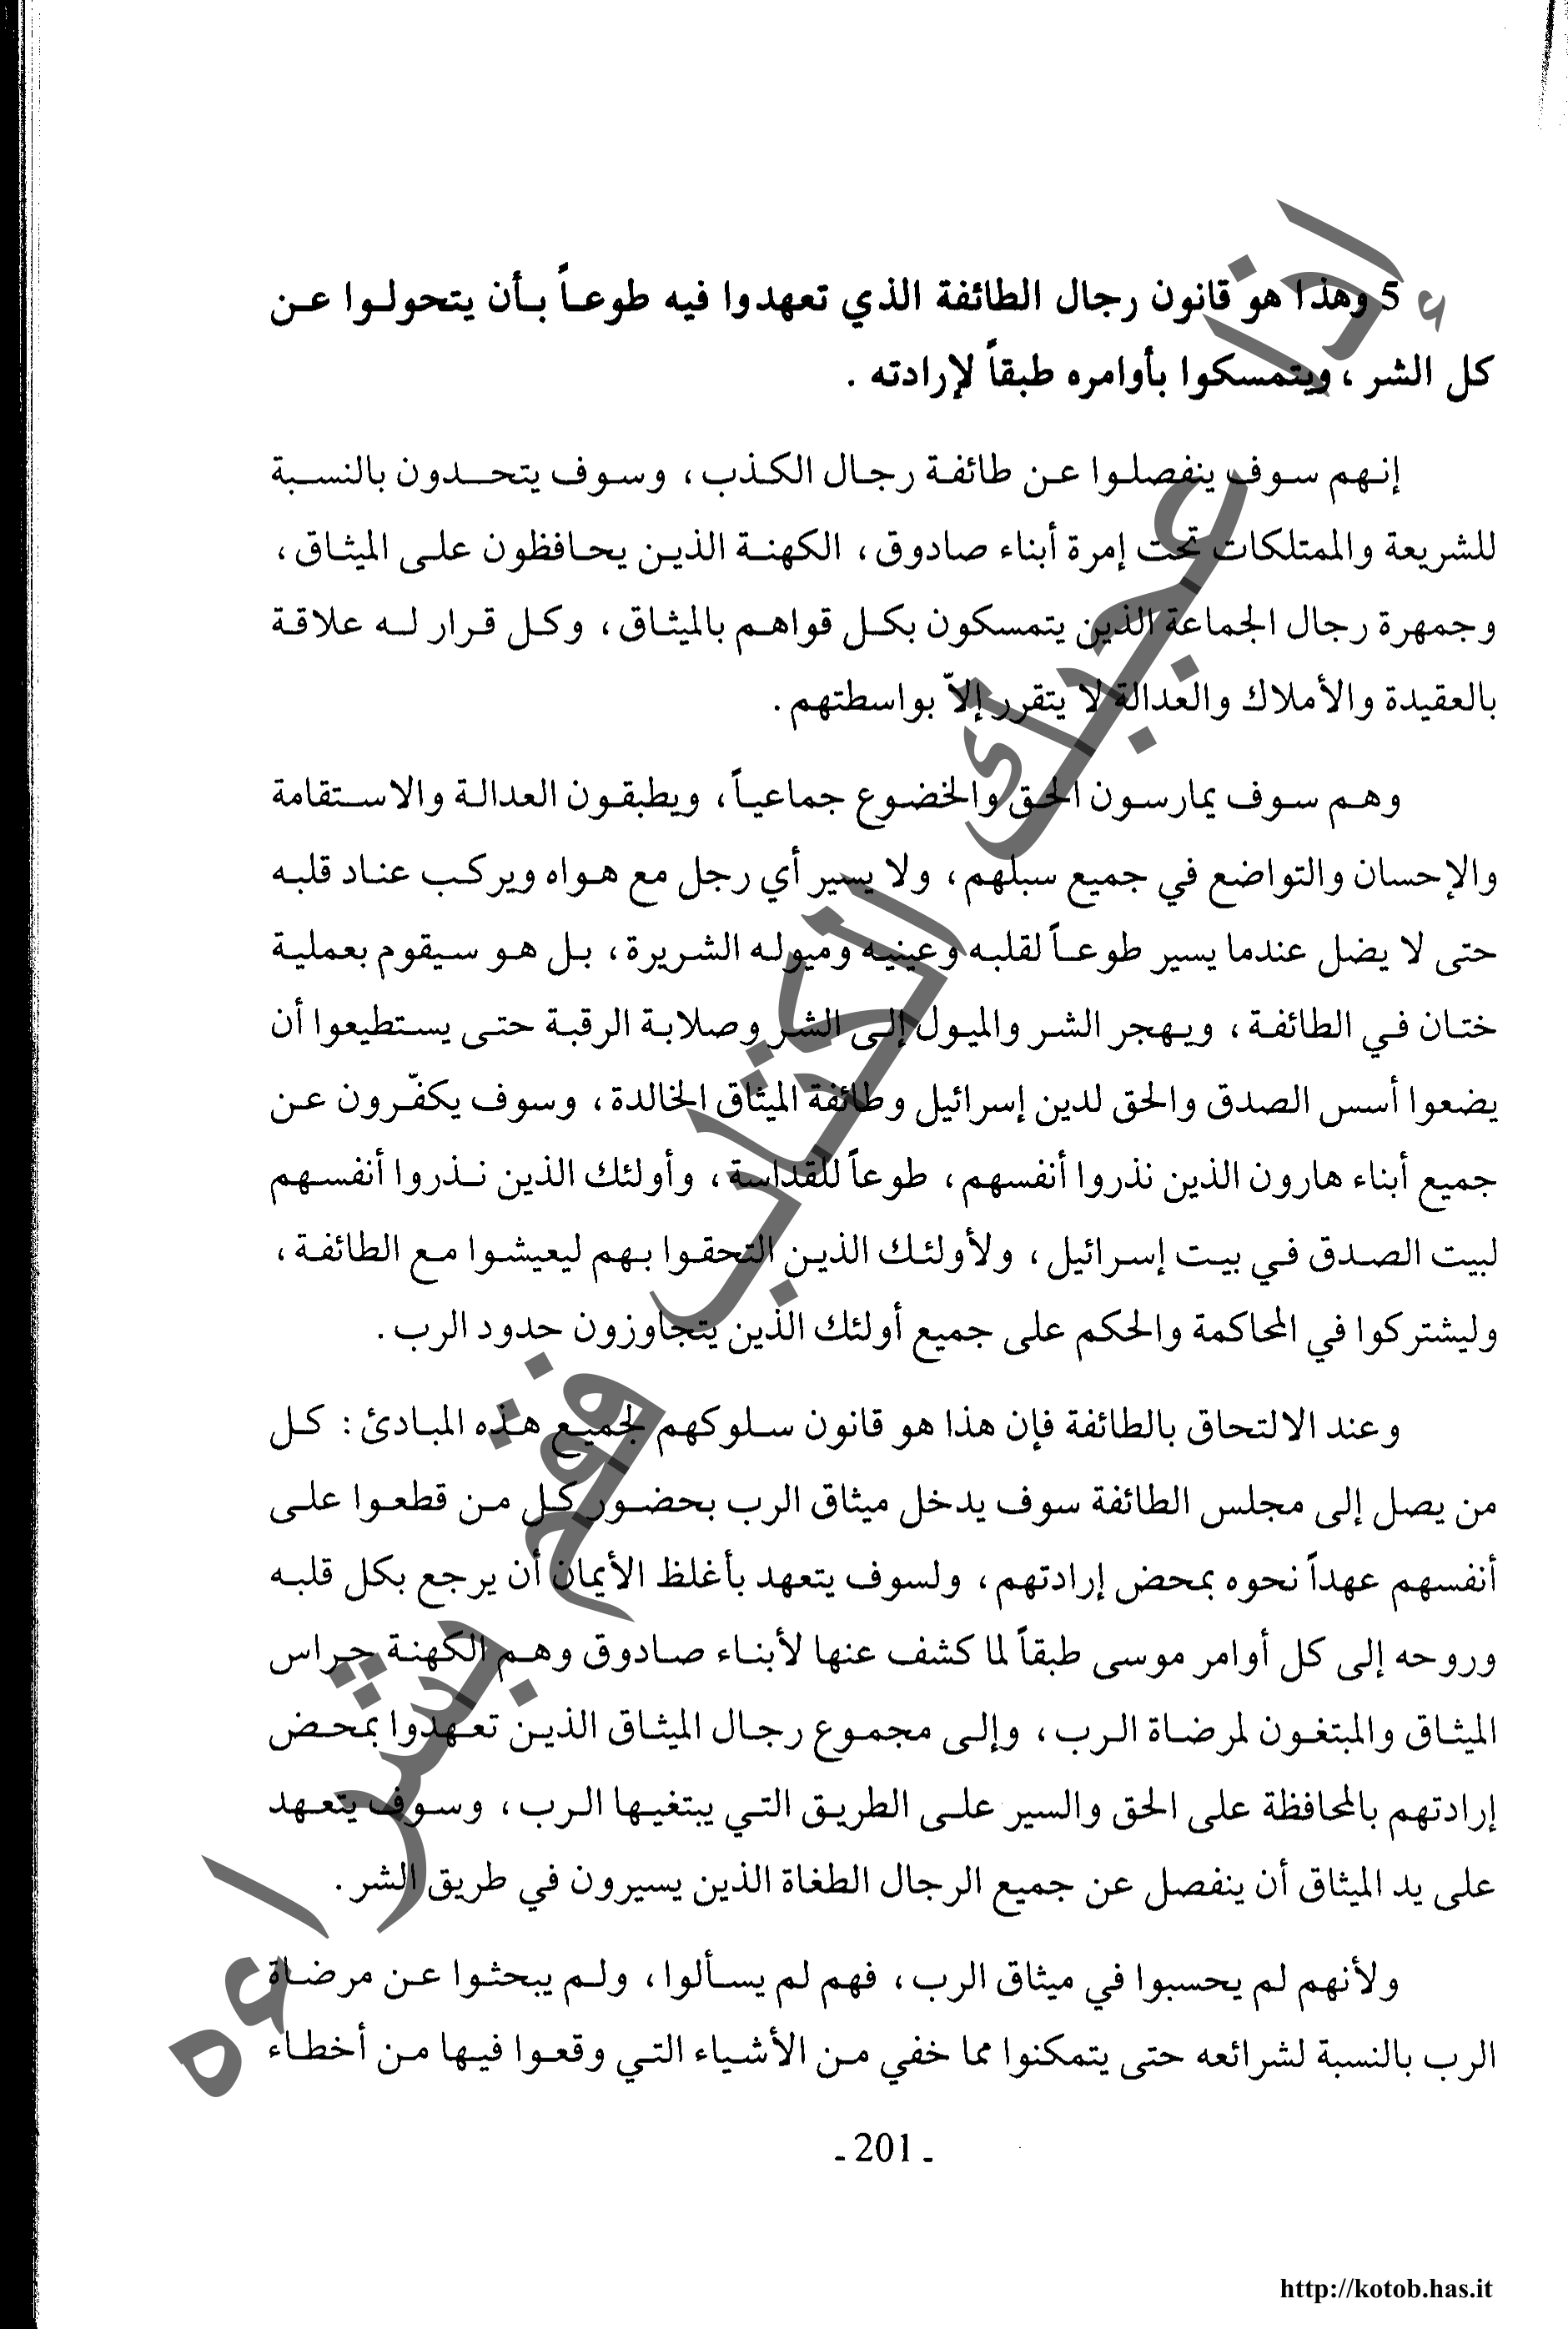 5 وهذا هو قانون رجال الطائفة الذي تعهدوا فيه طوعاً بأن يتحولوا عن
كل الشر ، ويتمسكوا بأوامره طبقاً لإرادته .
إنهم سوف ينفصلوا عن طائفة رجال الكذب، وسوف يتحدون بالنسبة
للشريعة والممتلكات تحت إمرة أبناء صادوق، الكهنة الذين يحافظون على الميثاق،
وجمهرة رجال الجماعة الذين يتمسكون بكل قواهم بالميثاق، وكل قرار له علاقة
بالعقيدة والأملاك والعدالة لا يتقرر إلاّ بواسطتهم .
وهم سوف يمارسون الحق والخضوع جماعياً، ويطبقون العدالة والاستقامة
والإحسان والتواضع في جميع سبلهم، ولا يسير أي رجل مع هواه ويركب عناد قلبه
حتى لا يضل عندما يسير طوعاً لقلبه وعينيه وميوله الشريرة، بل هو سيقوم بعملية
ختان في الطائفة، ويهجر الشر والميول إلى الشر وصلابة الرقبة حتى يستطيعوا أن
يضعوا أسس الصدق والحق لدين إسرائيل وطائفة الميثاق الخالدة، وسوف يكفّرون عن
جميع أبناء هارون الذين نذروا أنفسهم، طوعاً للقداسة، وأولئك الذين نذروا أنفسهم
لبيت الصدق في بيت إسرائيل، ولأولئك الذين التحقوا بهم ليعيشوا مع الطائفة،
وليشتركوا في المحاكمة والحكم على جميع أولئك الذين يتجاوزون حدود الرب .
وعند الالتحاق بالطائفة فإن هذا هو قانون سلوكهم لجميع هذه المبادئ: كل
من يصل إلى مجلس الطائفة سوف يدخل ميثاق الرب بحضور كل من قطعوا على
أنفسهم عهداً نحوه بمحض إرادتهم، ولسوف يتعهد بأغلظ الأيمان أن يرجع بكل قلبه
وروحه إلى كل أوامر موسى طبقاً لما كشف عنها لأبناء صادوق وهم الكهنة حراس
الميثاق والمبتغون لمرضاة الرب، وإلى مجموع رجال الميثاق الذين تعهدوا بمحض
إرادتهم بالمحافظة على الحق والسير على الطريق التي يبتغيها الرب، وسوف يتعهد
على يد الميثاق أن ينفصل عن جميع الرجال الطغاة الذين يسيرون في طريق الشر .
ولأنهم لم يحسبوا في ميثاق الرب، فهم لم يسألوا، ولم يبحثوا عن مرضاة
الرب بالنسبة لشرائعه حتى يتمكنوا مما خفي من الأشياء التي وقعوا فيها من أخطاء
- 201 -
إذا أعجبك الكتاب فقم بشراءه
http://kotob.has.it